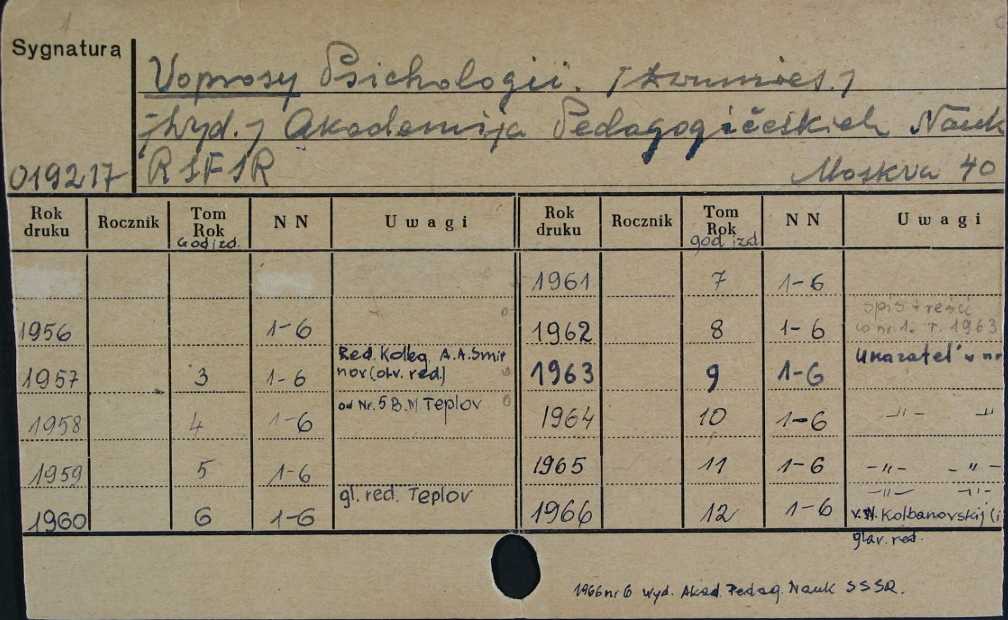 1
Sygnatura
Voprosy Psichologii. /dwumies./
/wyd./ Akademija Pedagogičeskich Nauk
RSFSR Moskva 40
019217
Rok druku Rocznik Tom Rok God izd. N N Uwagi Rok druku Rocznik Tom Rok god izd N N Uwagi
1961 7 1-6
1956 1-6 1962 8 1-6 spis treści w nr 1. r. 1963
1957 3 1-6 Red. Kolleg. A.A. Smirnov (otv. red) 1963 9 1-6 Ukazatel' w nr
1958 4 1-6 od Nr. 5 B.M Teplov 1964 10 1-6 -"- -"
1959 5 1-6 1965 11 1-6 -"- -"-
1960 6 1-6 gl. red. Teplov 1966 12 1-6 -"- -"-
Kolbanovskij (i
glav. red.
1966 nr 6 wyd. Akad. Pedag. Nauk SSSR.